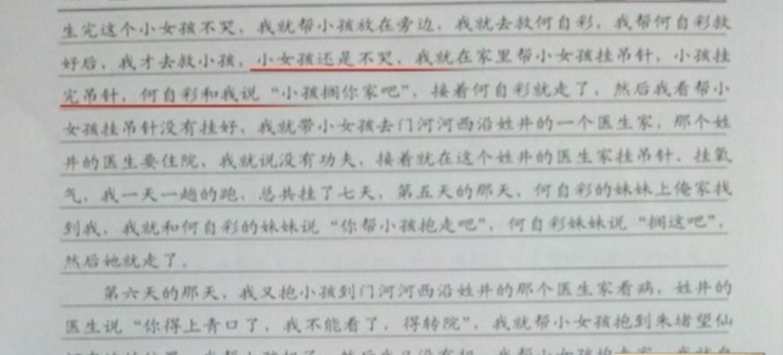 生完这个小女孩不哭，我就帮小孩放在旁边，我就去救何自彩，我帮何自彩救
好后，我才去救小孩，小女孩还是不哭，我就在家里帮小女孩挂吊针，小孩挂
完吊针，何自彩和我说“小孩搁你家吧”，接着何自彩就走了，然后我看帮小
女孩挂吊针没有挂好，我就带小女孩去门河河西沿姓井的一个医生家，那个姓
井的医生要住院，我就说没有功夫，接着就在这个姓井的医生家挂吊针，挂氧
气，我一天一趟的跑，总共挂了七天，第五天的那天，何自彩的妹妹上俺家找
到我，我就和何自彩的妹妹说“你帮小孩抱走吧”，何自彩妹妹说“搁这吧”，
然后她就走了。
第六天的那天，我又抱小孩到门河河西沿姓井的那个医生家看病，姓井的
医生说“你得上青口了，我不能看了，得转院”，我就帮小女孩抱到朱堵望仙